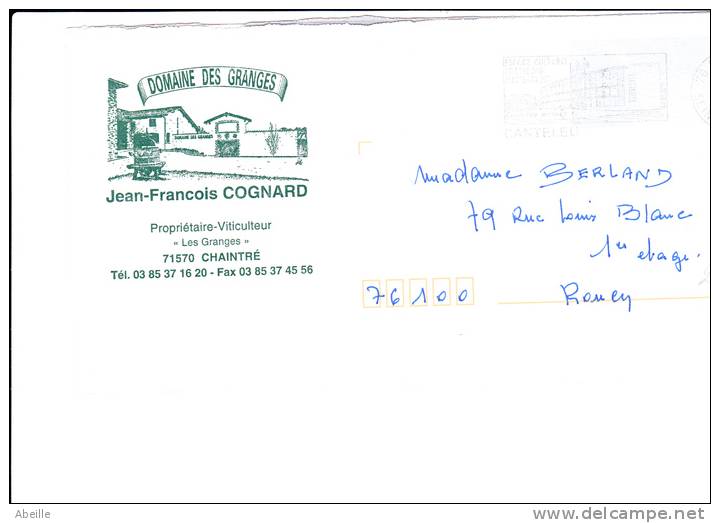 DOMAINE DES GRANGES
DOMAINE DES GRANGES
Jean-Francois COGNARD
Propriétaire-Viticulteur
« Les Granges »
71570 CHAINTRÉ
Tél. 03 85 37 16 20 - Fax 03 85 37 45 56
CANTELEU
Madame BERLAND
79 Rue Louis Blanc
1er etage.
76100 Rouen
Abeille
www.delcampe.net